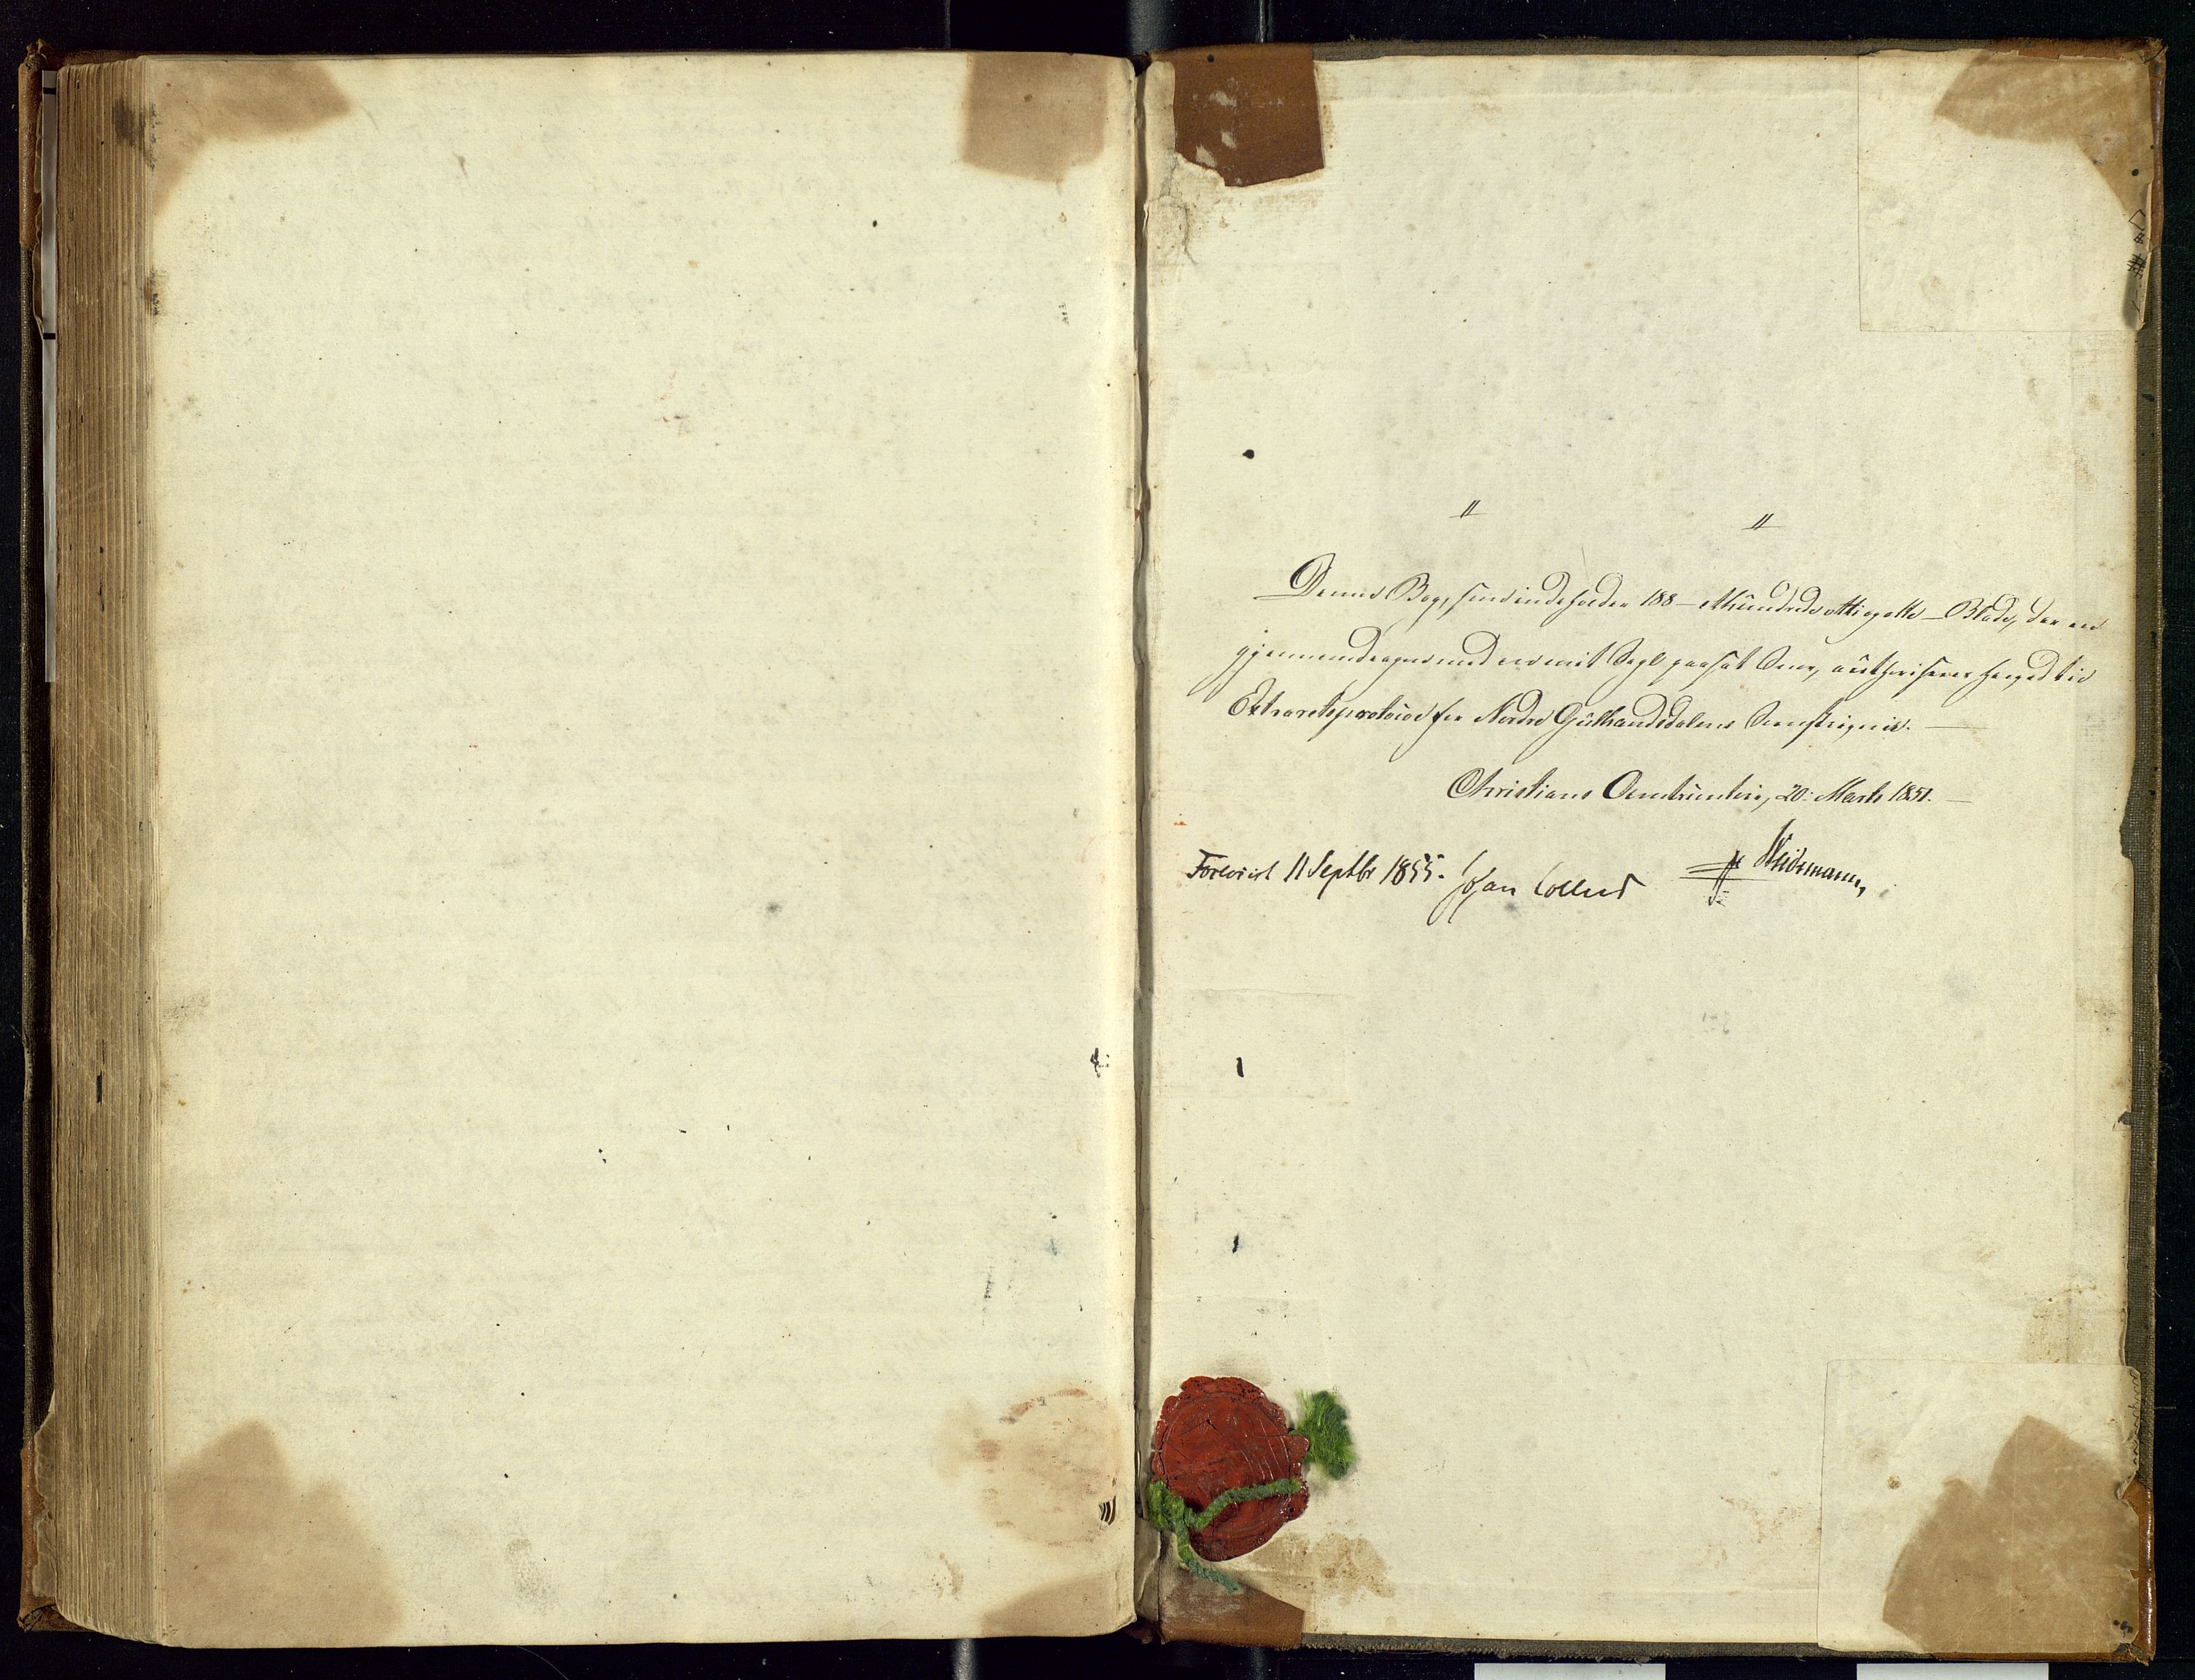 〃 〃
Denne Bog, som indeholder 188 – Ethundrede otti og otte – Blade, der ere
gjennemdragne med en mit Segl paasat Snor, authoriseres herved til
Extraretsprotocol for Nordre Gulbrandsdalens Sorenskriverie. –
Christians Amtcontoir, 20. Marts 1851. –
Weidemann,
Foreviist 11 Septbr 1855. Johan Collett